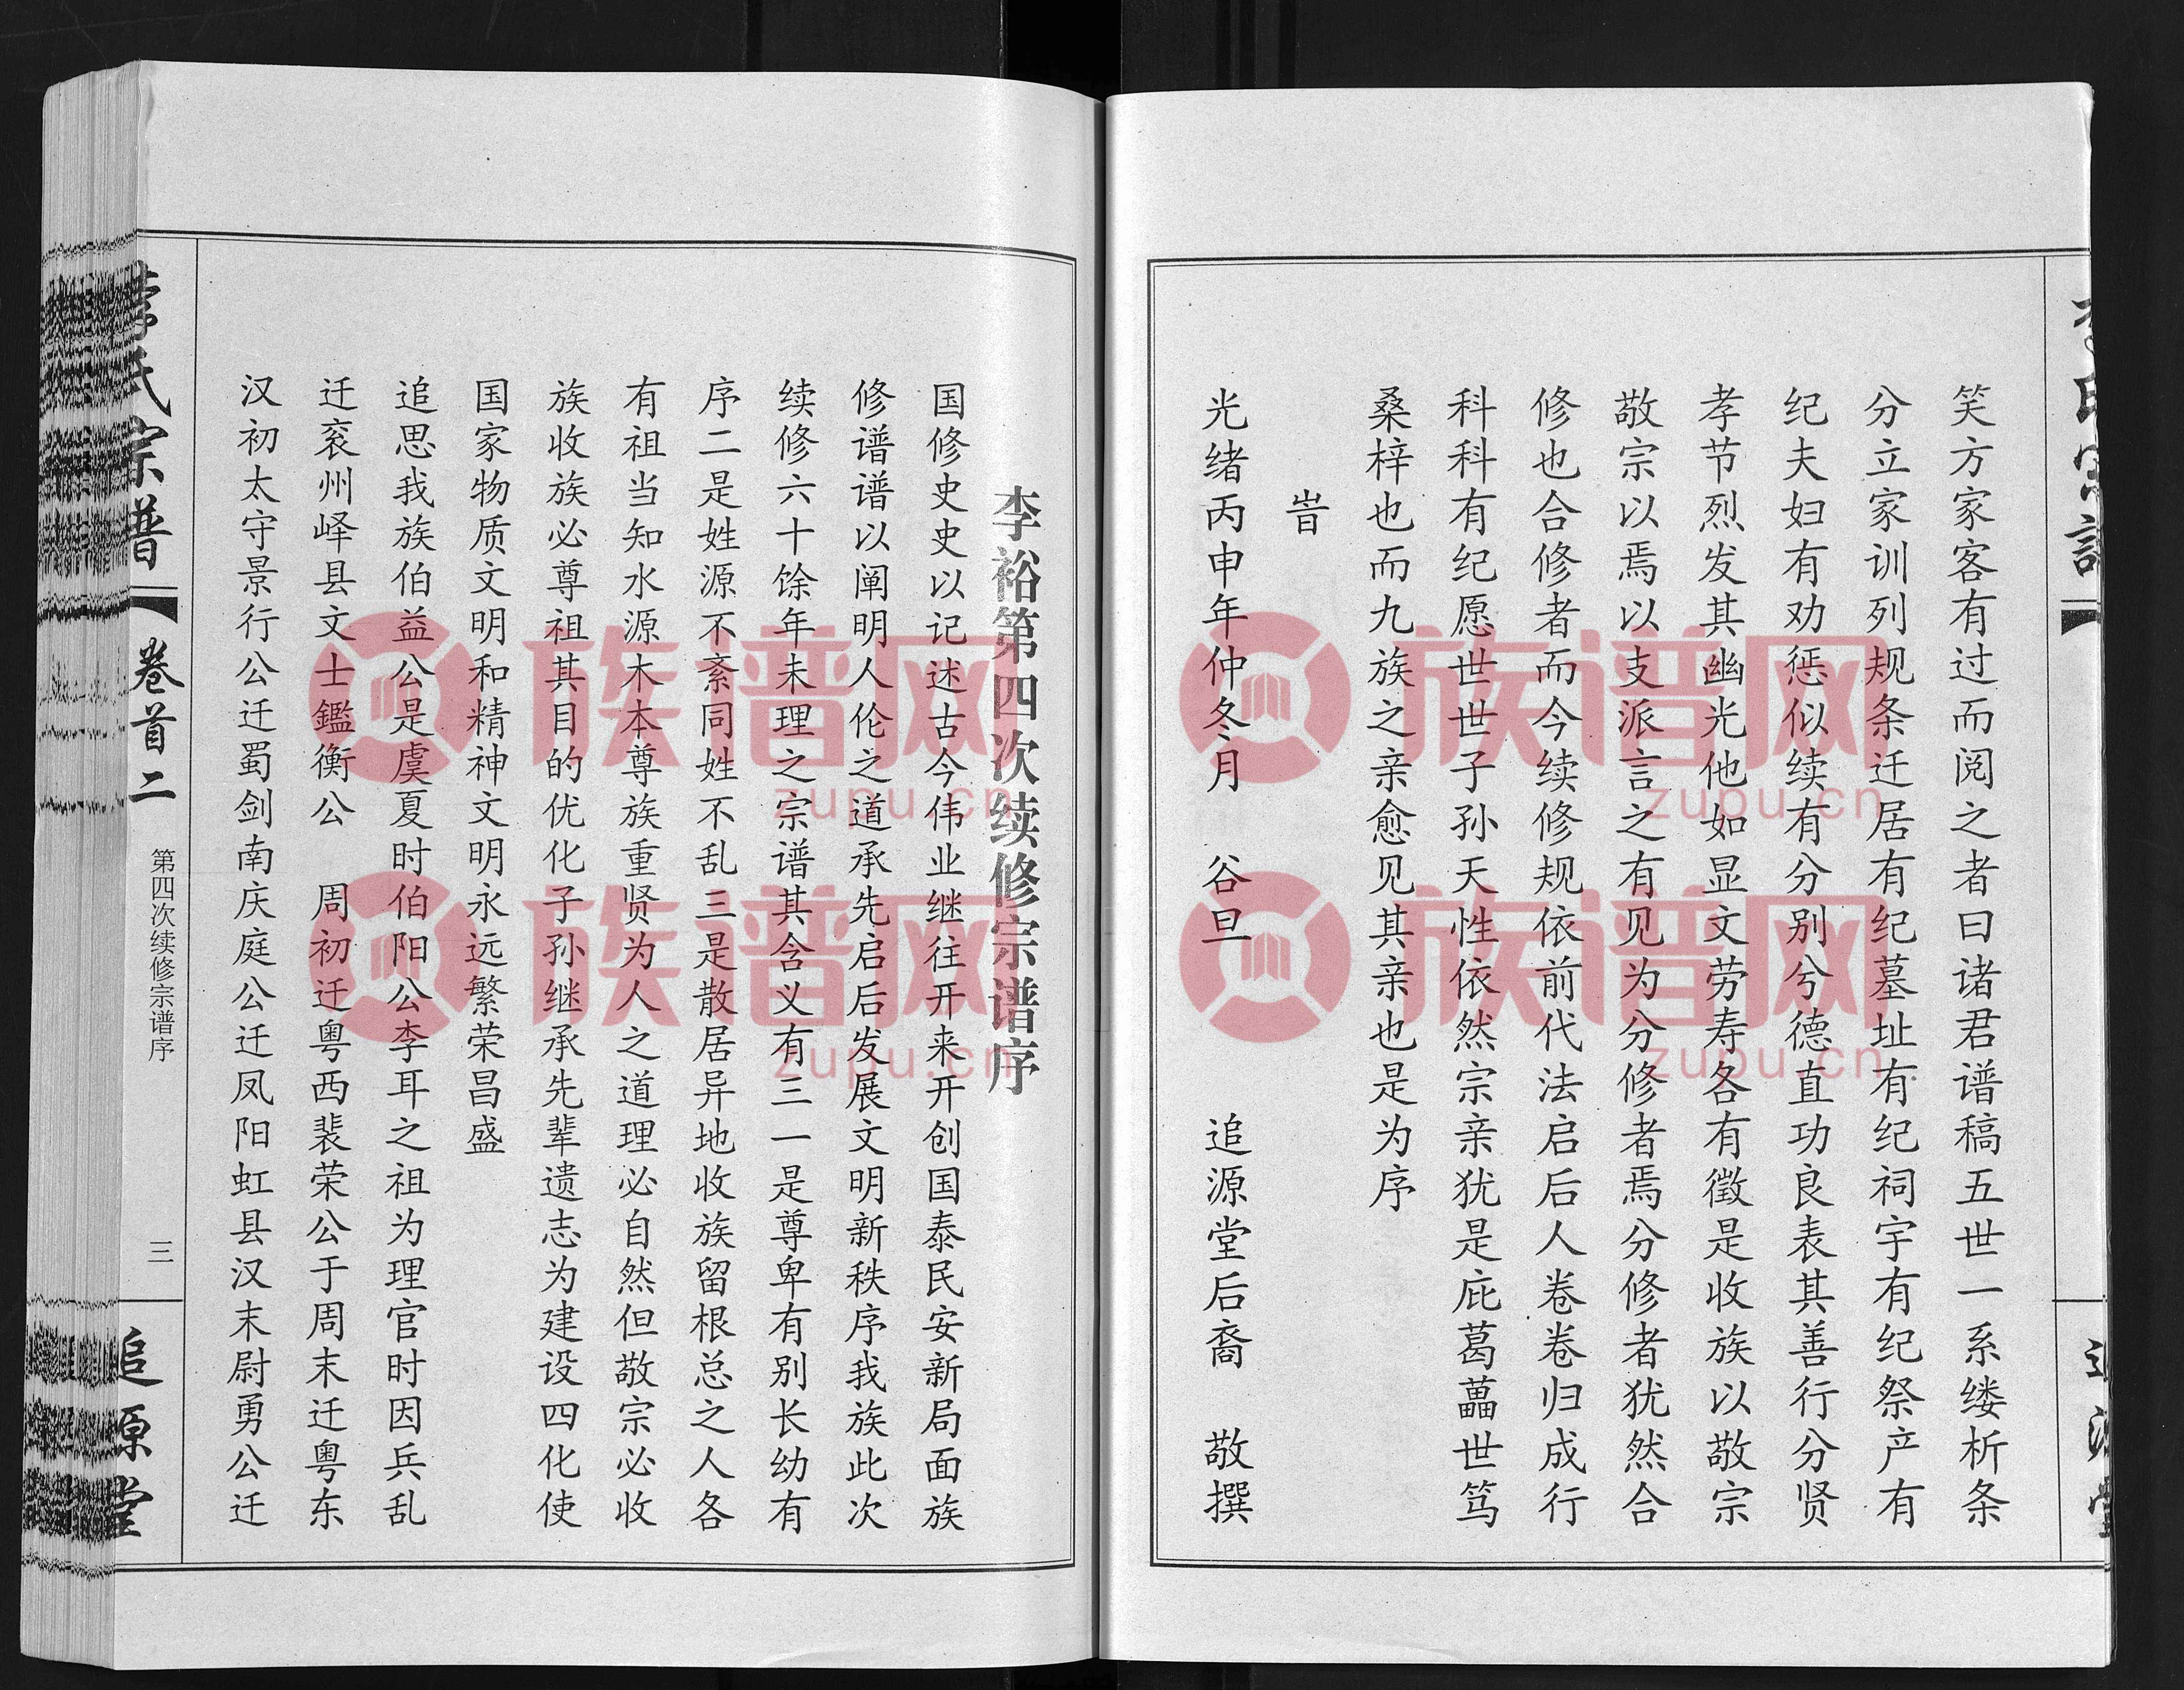 笑方家客有过而阅之者曰诸君谱稿五世一系缕析条
分立家训列规条迁居有纪墓址有纪祠宇有纪祭产有
纪夫妇有劝惩似续有分别兮德直功良表其善行分贤
孝节烈发其幽光他如显文劳寿各有徵是收族以敬宗
敬宗以焉以支派言之有见为分修者焉分修者犹然合
修也合修者而今续修规依前代法启后人卷卷归成行
科科有纪愿世世子孙天性依然宗亲犹是庇葛藟世笃
桑梓也而九族之亲愈见其亲也是为序
旹
光绪丙申年仲冬月 谷旦 追源堂后裔 敬撰
李裕第四次续修宗谱序
国修史史以记述古今伟业继往开来开创国泰民安新局面族
修谱谱以阐明人伦之道承先启后发展文明新秩序我族此次
续修六十馀年未理之宗谱其含义有三一是尊卑有别长幼有
序二是姓源不紊同姓不乱三是散居异地收族留根总之人各
有祖当知水源木本尊族重贤为人之道理必自然但敬宗必收
族收族必尊祖其目的优化子孙继承先辈遗志为建设四化使
国家物质文明和精神文明永远繁荣昌盛
追思我族伯益公是虞夏时伯阳公李耳之祖为理官时因兵乱
迁衮州峄县文士鑑衡公 周初迁粤西裴荣公于周末迁粤东
汉初太守景行公迁蜀剑南庆庭公迁凤阳虹县汉末尉勇公迁
李氏宗谱 卷首二 第四次续修宗谱序 三 追源堂
族谱网
zupu.cn
族谱网
zupu.cn
族谱网
zupu.cn
族谱网
zupu.cn